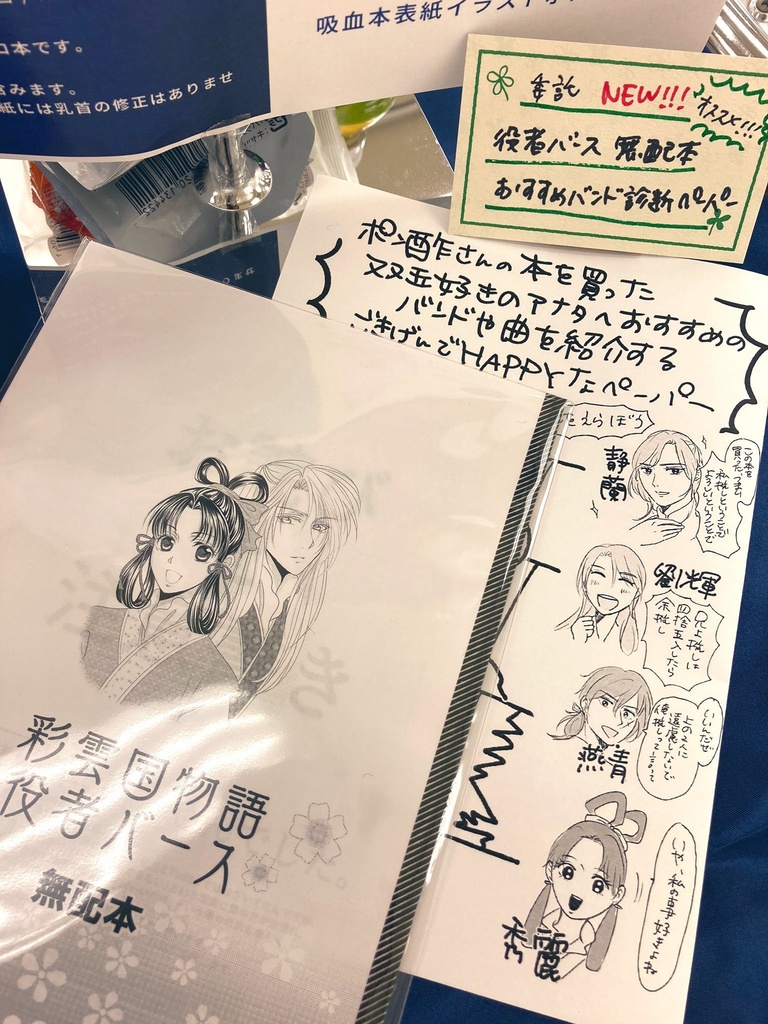 コ本です。
含みます。
紙には乳首の修正はありませ
吸血本表紙イラスト
委託 NEW!!! オススメ!!!
役者バース 無配本
おすすめバンド診断ペーパー
ポン酢さんの本を買った
双玉好きのアナタへおすすめの
バンドや曲を紹介する
ごきげんでHAPPYなペーパー
えらぼう
静蘭
この本を
買った、つまり
私推しということで
よろしいということで
劉輝
兄上推しは
四捨五入したら
余推し
燕青
いいんだぜ
上の2人に
遠慮しないで
俺推しって言って
秀麗
いや、私の事好きよね
彩雲国物語
役者バース
無配本